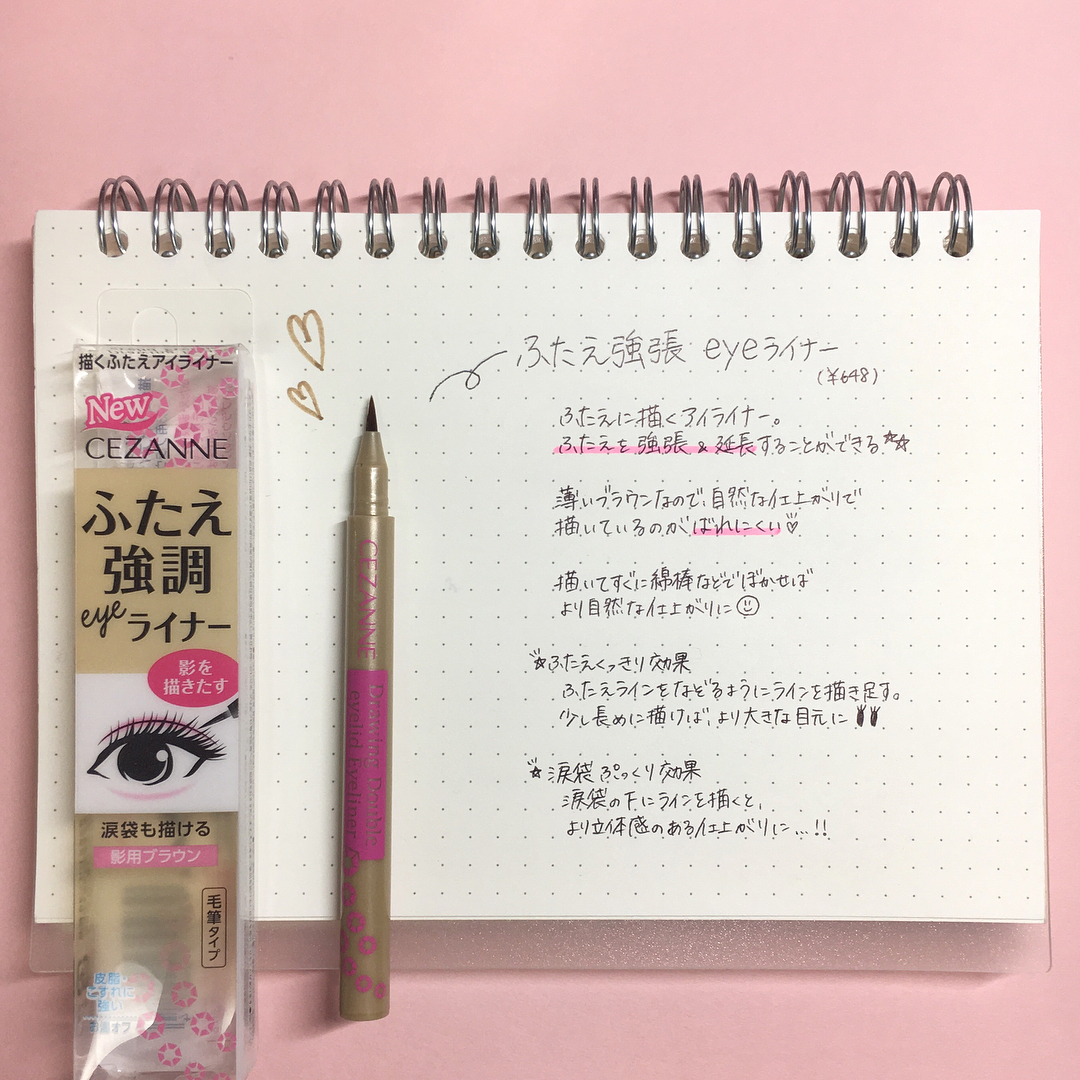 描くふたえアイライナー
New
CEZANNE
ふたえ
強調
eye ライナー
影を
描きたす
涙袋も描ける
影用ブラウン
毛筆タイプ
皮脂・
こすれに
強い
CEZANNE
Drawing Double
eyelid Eyeliner
ふたえ強張 eyeライナー
(¥648)
ふたえに描くアイライナー。
ふたえを強張&延長することができる
薄いブラウンなので、自然な仕上がりで
描いているのがばれにくい♡
描いてすぐに綿棒などでぼかせば
より自然な仕上がりに
☆ふたえくっきり効果
ふたえラインをなどるようにラインを描き足す。
少し長めに描けば、より大きな目元に
☆涙袋ぷっくり効果
涙袋の下にラインを描くと、
より立体感のある仕上がりに...!!